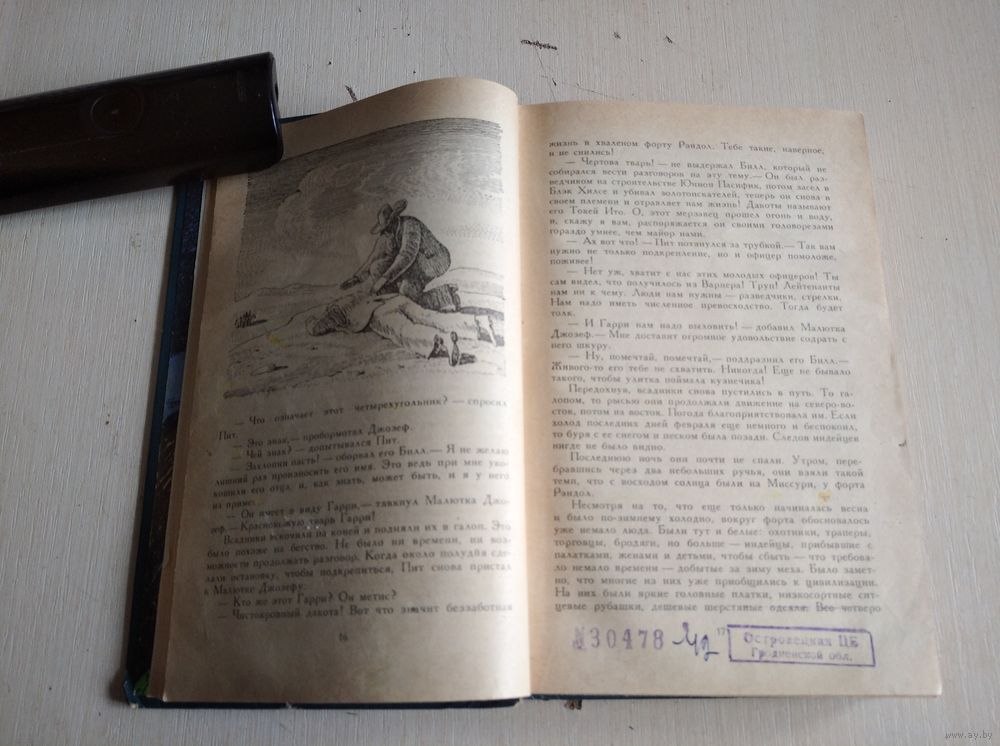 — Что означает этот четырехугольник? — спросил
Пит.
— Это знак,— пробормотал Джозеф.
— Чей знак? — допытывался Пит.
— Захлопни пасть! — оборвал его Билл.— Я не желаю
лишний раз произносить его имя. Это ведь при мне уко-
кошили его отца, и, как знать, может быть, и я у него
на примете.
— Он имеет в виду Гарри,— тявкнул Малютка Джо-
зеф.— Краснокожую тварь Гарри!
Всадники вскочили на коней и подняли их в галоп. Это
было похоже на бегство. Не было ни времени, ни воз-
можности продолжать разговор. Когда около полудня сде-
лали остановку, чтобы подкрепиться, Пит снова пристал
к Малютке Джозефу:
— Кто же этот Гарри? Он метис?
— Чистокровный дакота! Вот что значит беззаботная
16
жизнь в хваленом форту Рэндол. Тебе такие, наверное,
и не снились!
— Чертова тварь! — не выдержал Билл, который не
собирался вести разговоров на эту тему.— Он был раз-
ведчиком на строительстве Юнион Пасифик, потом засел в
Блэк Хилсе и убивал золотоискателей, теперь он снова в
своем племени и отравляет нам жизнь! Дакоты называют
его Токей Ито. О, этот мерзавец прошел огонь и воду,
и, скажу я вам, распоряжается он своими головорезами
гораздо умнее, чем майор нами.
— Ах вот что! — Пит потянулся за трубкой.— Так вам
нужно не только подкрепление, но и офицер помоложе,
поживее!
— Нет уж, хватит с нас этих молодых офицеров! Ты
сам видел, что получилось из Варнера! Труп! Лейтенанты
нам ни к чему. Люди нам нужны — разведчики, стрелки.
Нам надо иметь численное превосходство. Тогда будет
толк.
— И Гарри нам надо выловить! — добавил Малютка
Джозеф.— Мне доставит огромное удовольствие содрать с
него шкуру.
— Ну, помечтай, помечтай,— поддразнил его Билл.—
Живого-то его тебе не схватить. Никогда! Еще не бывало
такого, чтобы улитка поймала кузнечика!
Передохнув, всадники снова пустились в путь. То га-
лопом, то рысью они продолжали движение на северо-во-
сток, потом на восток. Погода благоприятствовала им. Если
холод последних дней февраля еще немного и беспокоил,
то буря с ее снегом и песком была позади. Следов индейцев
нигде не было видно.
Последнюю ночь они почти не спали. Утром, пере-
бравшись через два небольших ручья, они взяли такой
темп, что с восходом солнца были на Миссури, у форта
Рэндол.
Несмотря на то, что еще только начиналась весна
и было по-зимнему холодно, вокруг форта обосновалось
уже немало люда. Были тут и белые: охотники, траперы,
торговцы, бродяги, но больше — индейцы, прибывшие с
палатками, женами и детьми, чтобы сбыть — что требова-
ло немало времени — добытые за зиму меха. Было замет-
но, что многие из них уже приобщились к цивилизации.
На них были яркие головные платки, низкосортные сит-
цевые рубашки, дешевые шерстяные одеяла. Все четверо
17
№30478
Островецкая ЦБ
Гродненской обл.
www.ay.by